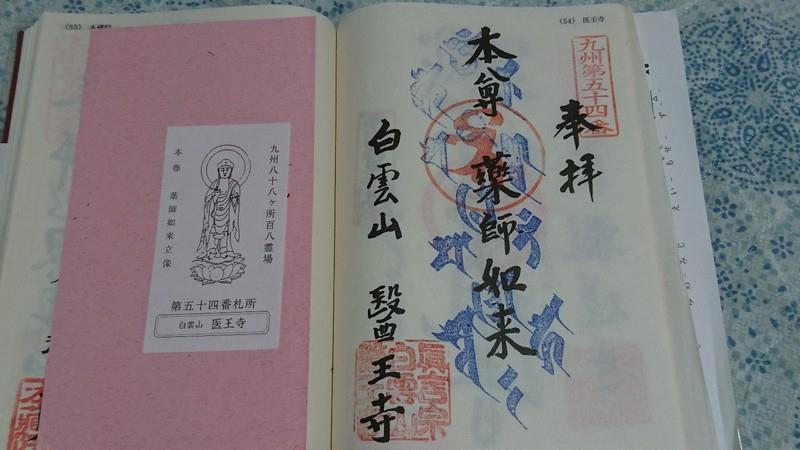 (54) 医王寺
九州第五十四番
奉拝
本尊 薬師如来
白雲山 醫王寺
眞言宗
白雲山
(55)
九州八十八ヶ所百八霊場
本尊 薬師如来立像
第五十四番札所
白雲山 医王寺